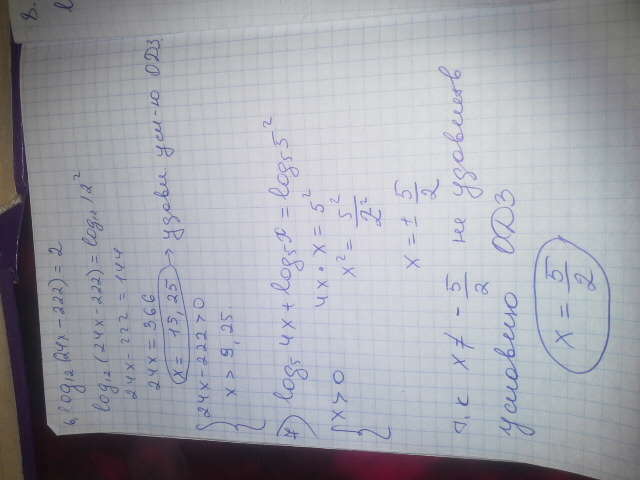 6, log₁₂(24x-222)=2
log₁₂(24x-222)=log₁₂12²
24x-222=144
24x=366
x=15,25 → удовл усл-ю ОДЗ
{24x-222>0
{x>9,25.
7) log₅4x+log₅x=log₅5²
4x·x=5²
{x>0 x²=5²/2²
x=±5/2
т.к x≠-5/2 не удовлетв
условию ОДЗ
x=5/2